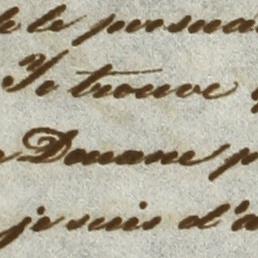 le persua
Je trouve
Douane p
je suis d'a